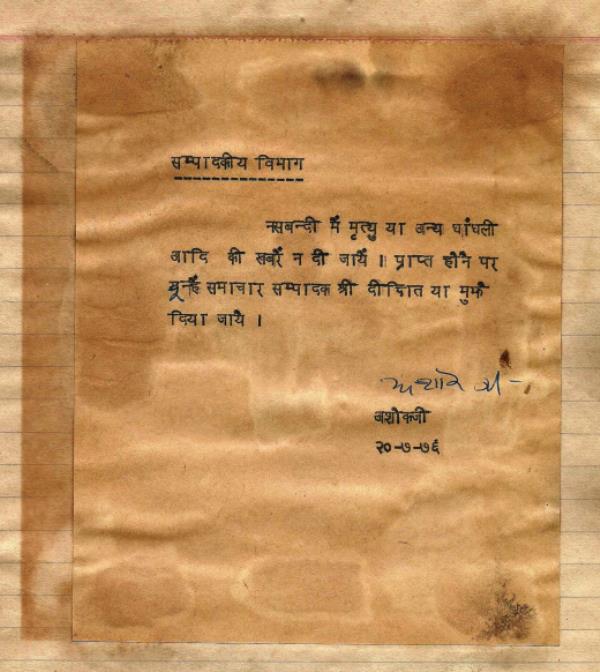 सम्पादकीय विभाग
नसबन्दी में मृत्यु या अन्य धांधली
आदि की खबरें न दी जायें । प्राप्त होने पर
इन्हें समाचार सम्पादक श्री दीक्षित या मुझे
दिया जाये ।
अशोक जी
अशोकजी
२०-७-७६